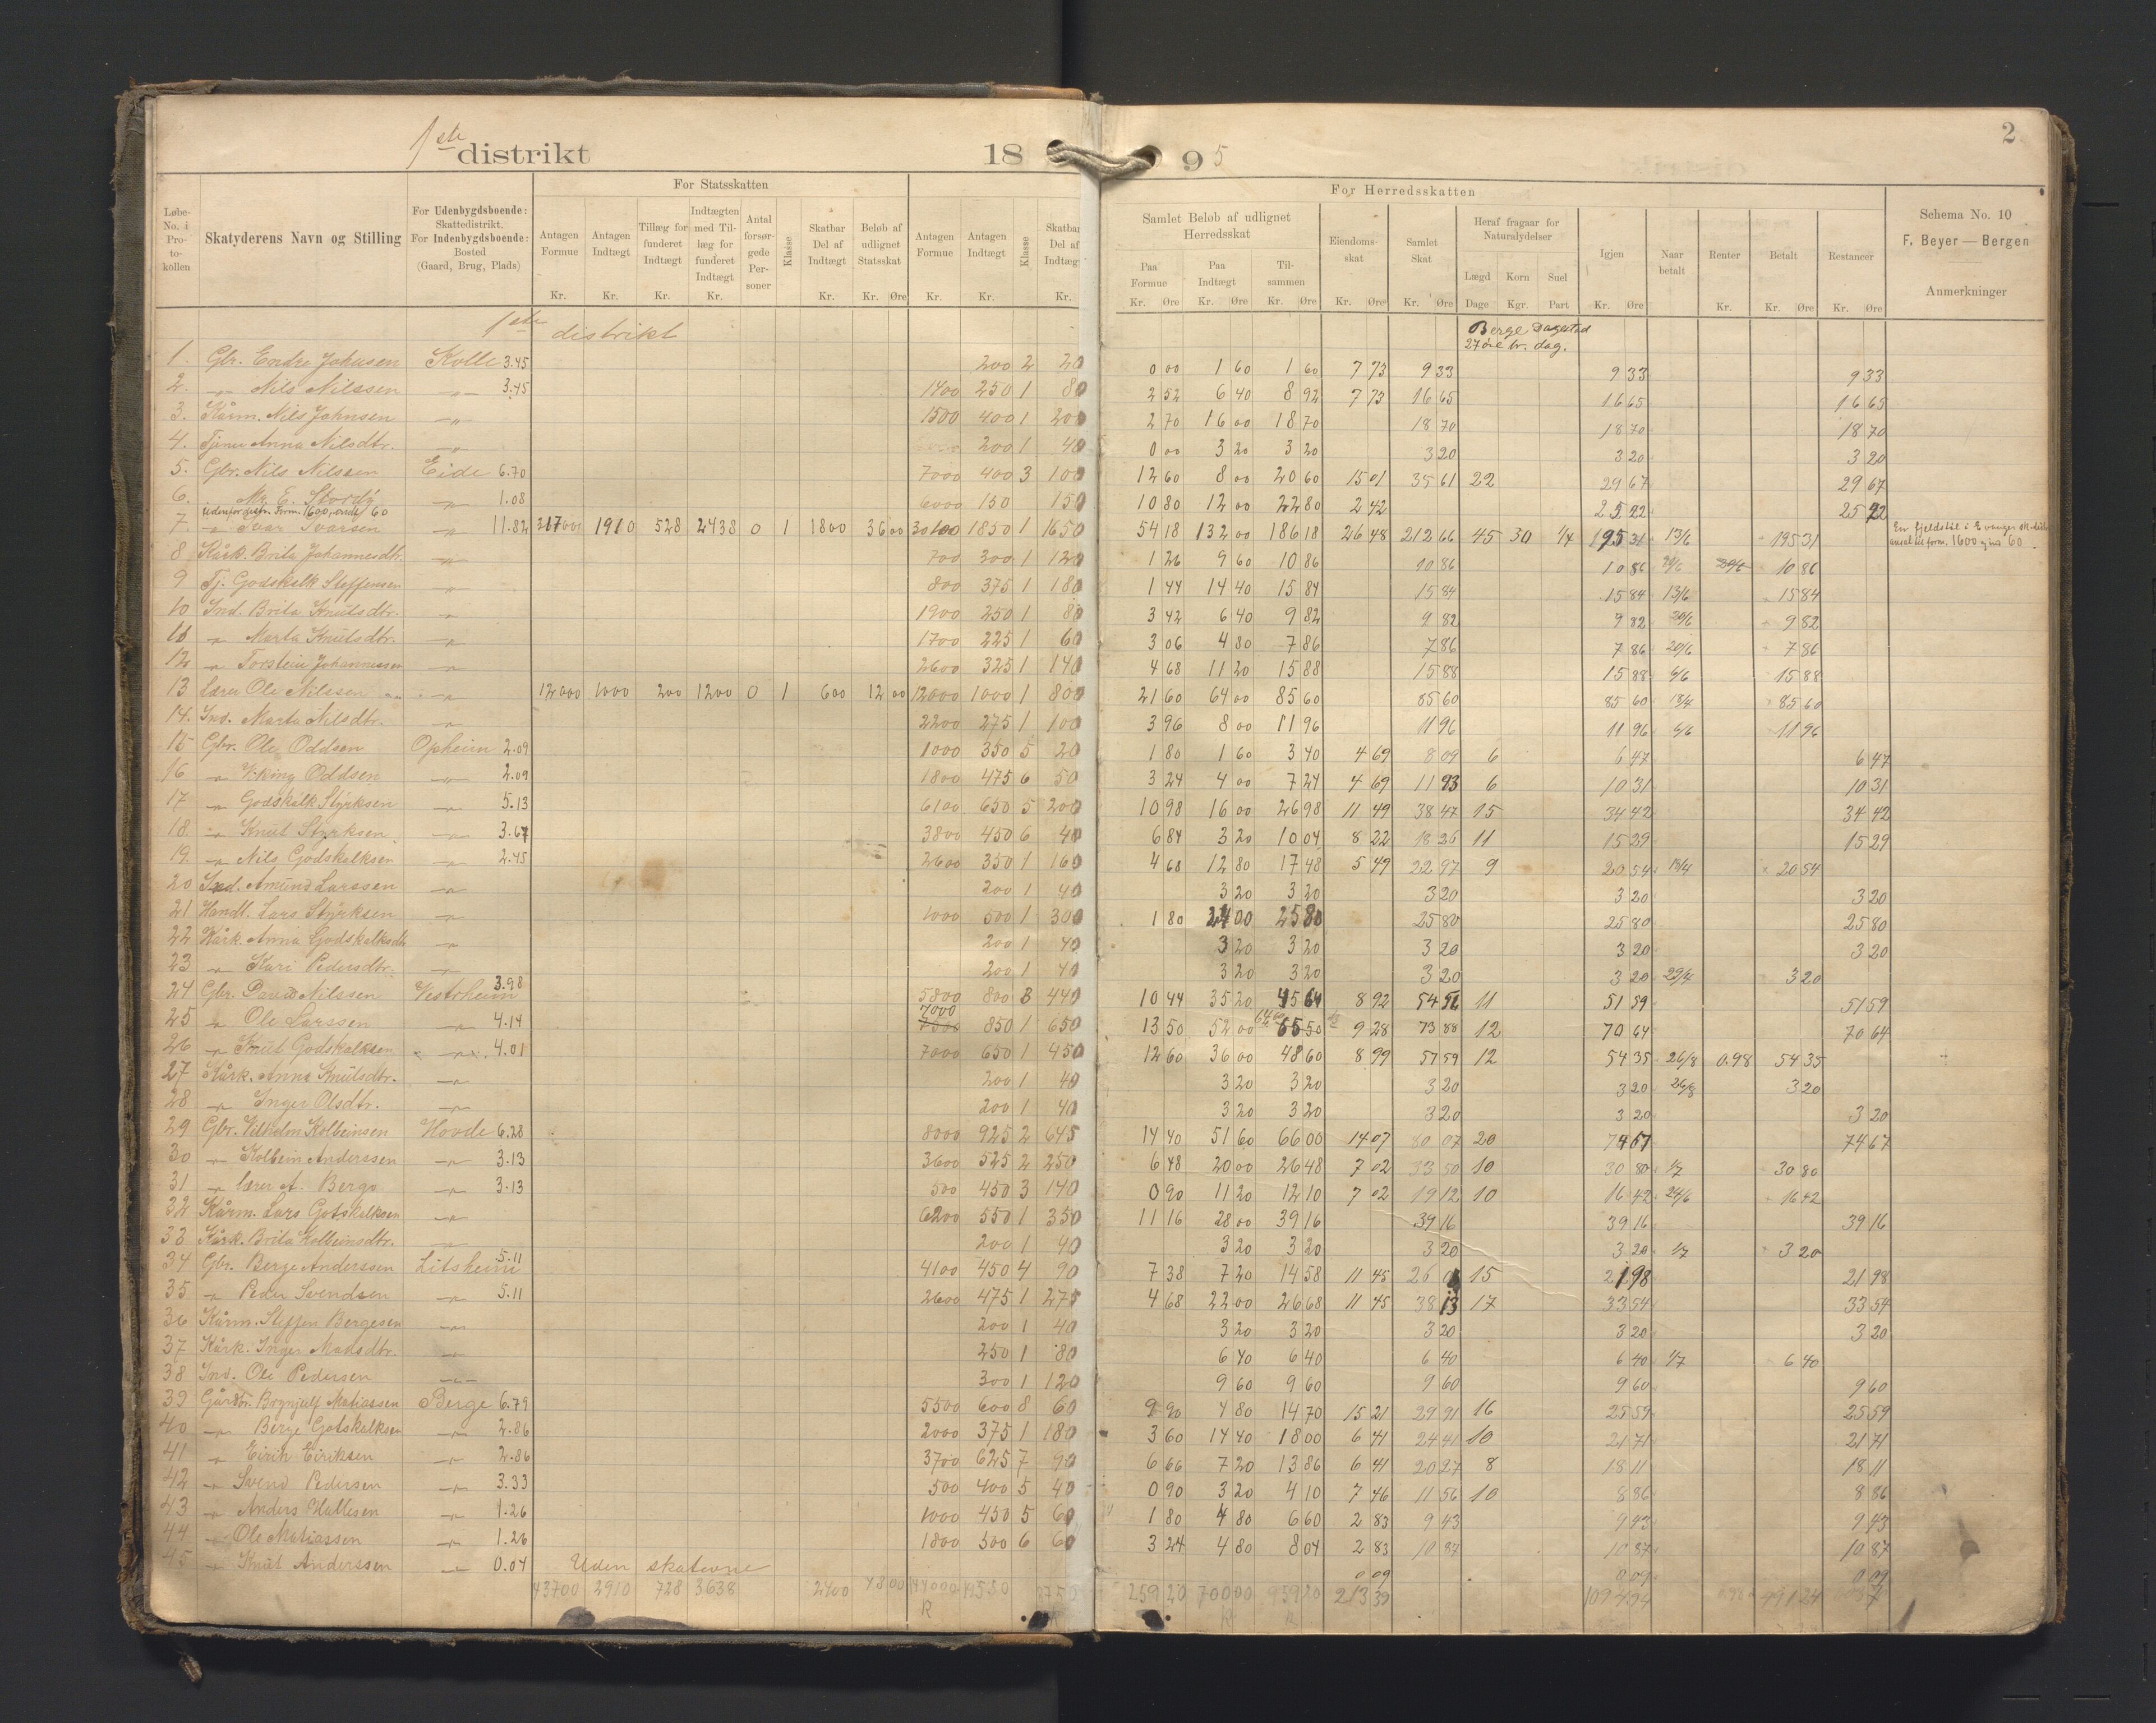 1ste distrikt 18 95 2
For Statsskatten
For Herredsskatten
Løbe-No. i Pro-to-kollen | Skatyderens Navn og Stilling | For Udenbygdsboende: Skattedistrikt. For Indenbygdsboende: Bosted (Gaard, Brug, Plads) | Antagen Formue Kr. | Antagen Indtægt Kr. | Tillæg for funderet Indtægt Kr. | Indtægten med Til-læg for funderet Indtægt Kr. | Antal forsør-gede Per-soner | Klasse | Skatbar Del af Indtægt Kr. | Beløb af udlignet Statsskat Kr. Øre | Antagen Formue Kr. | Antagen Indtægt Kr. | Klasse | Skatbar Del af Indtægt Kr. | Samlet Beløb af udlignet Herredsskat Paa Formue Kr. Øre | Paa Indtægt Kr. Øre | Til-sammen Kr. Øre | Eiendoms-skat Kr. Øre | Samlet Skat Kr. Øre | Heraf fragaar for Naturalydelser Lægd Dage | Korn Kgr. | Suel Part | Igjen Kr. Øre | Naar betalt | Renter Kr. | Betalt Kr. Øre | Restancer Kr. Øre | Schema No. 10 F. Beyer — Bergen Anmerkninger
1ste distrikt
Berge Dagsted
27 øre br. dag.
1. Gbr. Endre Johnsen Kolle 3.45 200 2 20 0 00 1 60 1 60 7 73 9 33 9 33 9 33
2. -"- Nils Nilssen -"- 3.45 1400 250 1 80 2 52 6 40 8 92 7 73 16 65 16 65 16 65
3. Kårm. Nils Johnsen -"- 1500 400 1 200 2 70 16 00 18 70 18 70 18 70 18 70
4. Tjener Anna Nilsdtr. -"- 200 1 40 0 00 3 20 3 20 3 20 3 20 3 20
5. Gbr. Nils Nilssen Eide 6.70 7000 400 3 100 12 60 8 00 20 60 15 01 35 61 22 29 67 29 67
6. -"- Mg. E. Stordy -"- 1.08 6000 150 150 10 80 12 00 22 80 2 42 25 22 25 22
udenfor distr. Form. 1600, indt. 60
7. -"- Ivar Ivarsen -"- 11.82 317000 1910 528 2438 0 1 1800 36 00 30100 1850 1 1650 54 18 132 00 186 18 26 48 212 66 45 30 1/4 195 31 13/6 195 31 En fjeldstøl i Evanger sk.distr. ansat til form. 1600 og ind 60.
8 Kårk. Brita Johannesdtr. -"- 700 300 1 120 1 26 9 60 10 86 10 86 10 86 20/6 10 86
9 Tj. Godskalk Steffensen -"- 800 375 1 180 1 44 14 40 15 84 15 84 15 84 13/6 15 84
10 Ind. Brita Knutsdtr. -"- 1900 250 1 80 3 42 6 40 9 82 9 82 9 82 20/6 9 82
11 -"- Marta Knutsdtr. -"- 1700 225 1 60 3 06 4 80 7 86 7 86 7 86 20/6 7 86
12 -"- Torstein Johannessen -"- 2600 325 1 140 4 68 11 20 15 88 15 88 15 88 6/6 15 88
13 Lærer Ole Nilssen -"- 12000 1000 200 1200 0 1 600 12 00 12000 1000 1 800 21 60 64 00 85 60 85 60 85 60 13/4 85 60
14. Ind. Marta Nilsdtr. -"- 2200 275 1 100 3 96 8 00 11 96 11 96 11 96 6/6 11 96
15 Gbr. Ole Oddsen Opheim 2.09 1000 350 5 20 1 80 1 60 3 40 4 69 8 09 6 6 47 6 47
16 -"- Viking Oddsen -"- 2.09 1800 475 6 50 3 24 4 00 7 24 4 69 11 93 6 10 31 10 31
17 -"- Godskalk Styrksen -"- 5.13 6100 650 5 200 10 98 16 00 26 98 11 49 38 47 15 34 42 34 42
18. -"- Knut Styrksen -"- 3.67 3800 450 6 40 6 84 3 20 10 04 8 22 18 26 11 15 29 15 29
19. -"- Nils Godskalksen -"- 2.45 2600 350 1 160 4 68 12 80 17 48 5 49 22 97 9 20 54 18/4 20 54
20 Ind. Amund Larssen -"- 200 1 40 3 20 3 20 3 20 3 20 3 20
21 Handl. Lars Styrksen -"- 1000 500 1 300 1 80 24 00 25 80 25 80 25 80 25 80
22 Kårk. Anna Godskalksdtr. -"- 200 1 40 3 20 3 20 3 20 3 20 3 20
23 -"- Kari Pedersdtr. -"- 200 1 40 3 20 3 20 3 20 3 20 22/4 3 20
24 Gbr. David Nilssen Vestrheim 3.98 5800 800 3 440 10 44 35 20 45 64 8 92 54 56 11 51 59 51 59
25 -"- Ole Larssen -"- 4.14 7000 850 1 650 13 50 52 00 65 50 9 28 73 88 12 70 64 70 64
26 -"- Knut Godskalksen -"- 4.01 7000 650 1 450 12 60 36 00 48 60 8 99 57 59 12 54 35 26/8 0.98 54 35
27 Kårk. Anna Knutsdtr. -"- 200 1 40 3 20 3 20 3 20 3 20 26/8 3 20
28 -"- Inger Olsdtr. -"- 200 1 40 3 20 3 20 3 20 3 20 3 20
29 Gbr. Vilhelm Kolbeinsen Hovde 6.28 8000 925 2 645 14 40 51 60 66 00 14 07 80 07 20 74 67 74 67
30 -"- Kolbein Anderssen -"- 3.13 3600 525 2 250 6 48 20 00 26 48 7 02 33 50 10 30 80 1/7 30 80
31 -"- lærer A. Berge -"- 3.13 500 450 3 140 0 90 11 20 12 10 7 02 19 12 10 16 42 24/6 16 42
32 Kårm. Lars Gotskalksen -"- 6200 550 1 350 11 16 28 00 39 16 39 16 39 16 39 16
33 Kårk. Brita Kolbeinsdtr. -"- 200 1 40 3 20 3 20 3 20 3 20 1/7 3 20
34 Gbr. Berge Anderssen Litsheim 5.11 4100 450 4 90 7 38 7 20 14 58 11 45 26 15 21 98 21 98
35 -"- Peder Svendsen -"- 5.11 2600 475 1 275 4 68 22 00 26 68 11 45 38 13 17 33 54 33 54
36 Kårm. Steffen Bergesen -"- 200 1 40 3 20 3 20 3 20 3 20 3 20
37 Kårk. Inger Madsdtr. -"- 250 1 80 6 40 6 40 6 40 6 40 1/7 6 40
38 Ind. Ole Pedersen -"- 300 1 120 9 60 9 60 9 60 9 60 9 60
39 Gårdbr. Brynjulf Matiassen Berge 6.79 5500 600 8 60 9 90 4 80 14 70 15 21 29 91 16 25 59 25 59
40 -"- Berge Gotskalksen -"- 2.86 2000 375 1 180 3 60 14 40 18 00 6 41 24 41 10 21 71 21 71
41 -"- Eirik Eiriksen -"- 2.86 3700 625 7 90 6 66 7 20 13 86 6 41 20 27 8 18 11 18 11
42 -"- Svend Pedersen -"- 3.33 500 400 5 40 0 90 3 20 4 10 7 46 11 56 10 8 86 8 86
43 -"- Anders Hallesen -"- 1.26 1000 450 5 60 1 80 4 80 6 60 2 83 9 43 9 43 9 43
44 -"- Ole Matiassen -"- 1.26 1800 500 6 60 3 24 4 80 8 04 2 83 10 87 10 87 10 87
45 -"- Knut Anderssen -"- 0.04 Uden skatevne 0 09 0 09 0 09
43700 2910 728 3638 2400 48 00 259 20 700 00 959 20 213 39
R R R